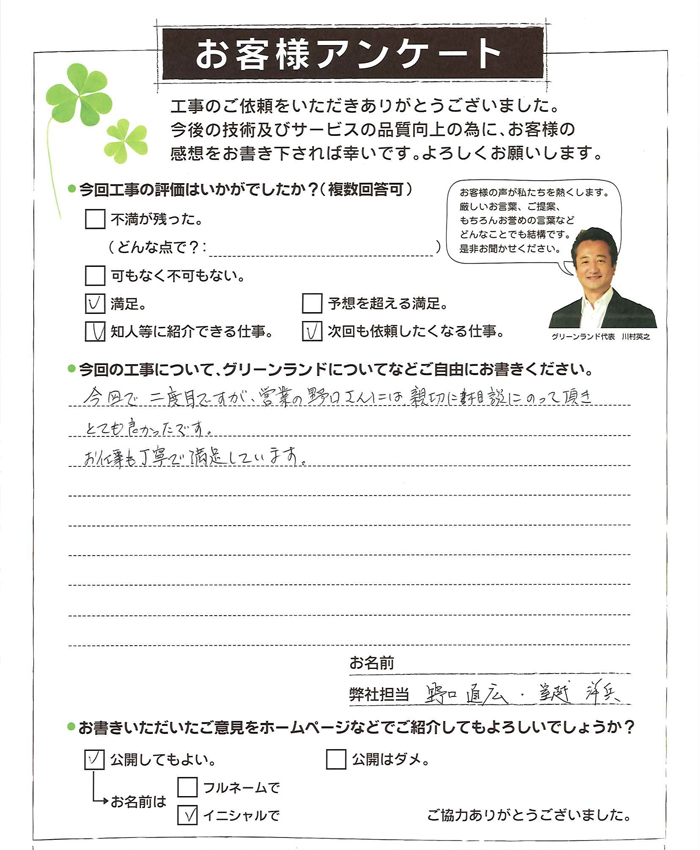 お客様アンケート
工事のご依頼をいただきありがとうございました。
今後の技術及びサービスの品質向上の為に、お客様の
感想をお書き下されば幸いです。よろしくお願いします。
●今回工事の評価はいかがでしたか？（複数回答可）
お客様の声が私たちを熱くします。
厳しいお言葉、ご提案、
もちろんお誉めの言葉など
どんなことでも結構です。
是非お聞かせください。
不満が残った。
（どんな点で？： ）
可もなく不可もない。
満足。 予想を超える満足。
知人等に紹介できる仕事。 次回も依頼したくなる仕事。
グリーンランド代表 川村英之
●今回の工事について、グリーンランドについてなどご自由にお書きください。
今回で二度目ですが、営業の野口さんには、親切に相談にのって頂き
とても良かったです。
お仕事も丁寧で満足しています。
お名前
弊社担当 野口 直広・ 洋兵
●お書きいただいたご意見をホームページなどでご紹介してもよろしいでしょうか？
公開してもよい。 公開はダメ。
お名前は フルネームで
イニシャルで
ご協力ありがとうございました。